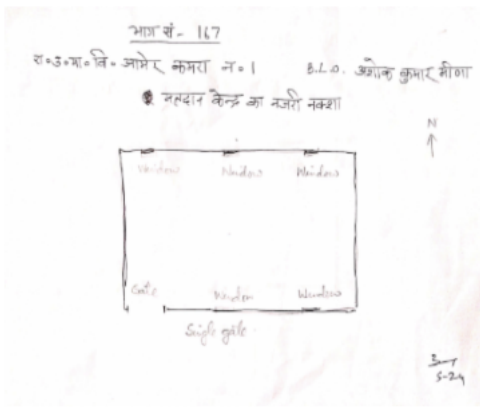 भाग सं- 167
रा॰उ॰मा॰वि॰ आमेर कमरा न॰ 1 B.L.O. अशोक कुमार मीणा
मतदान केन्द्र का नजरी नक्शा
N
Window Window Window
Gate Window Window
Single gate